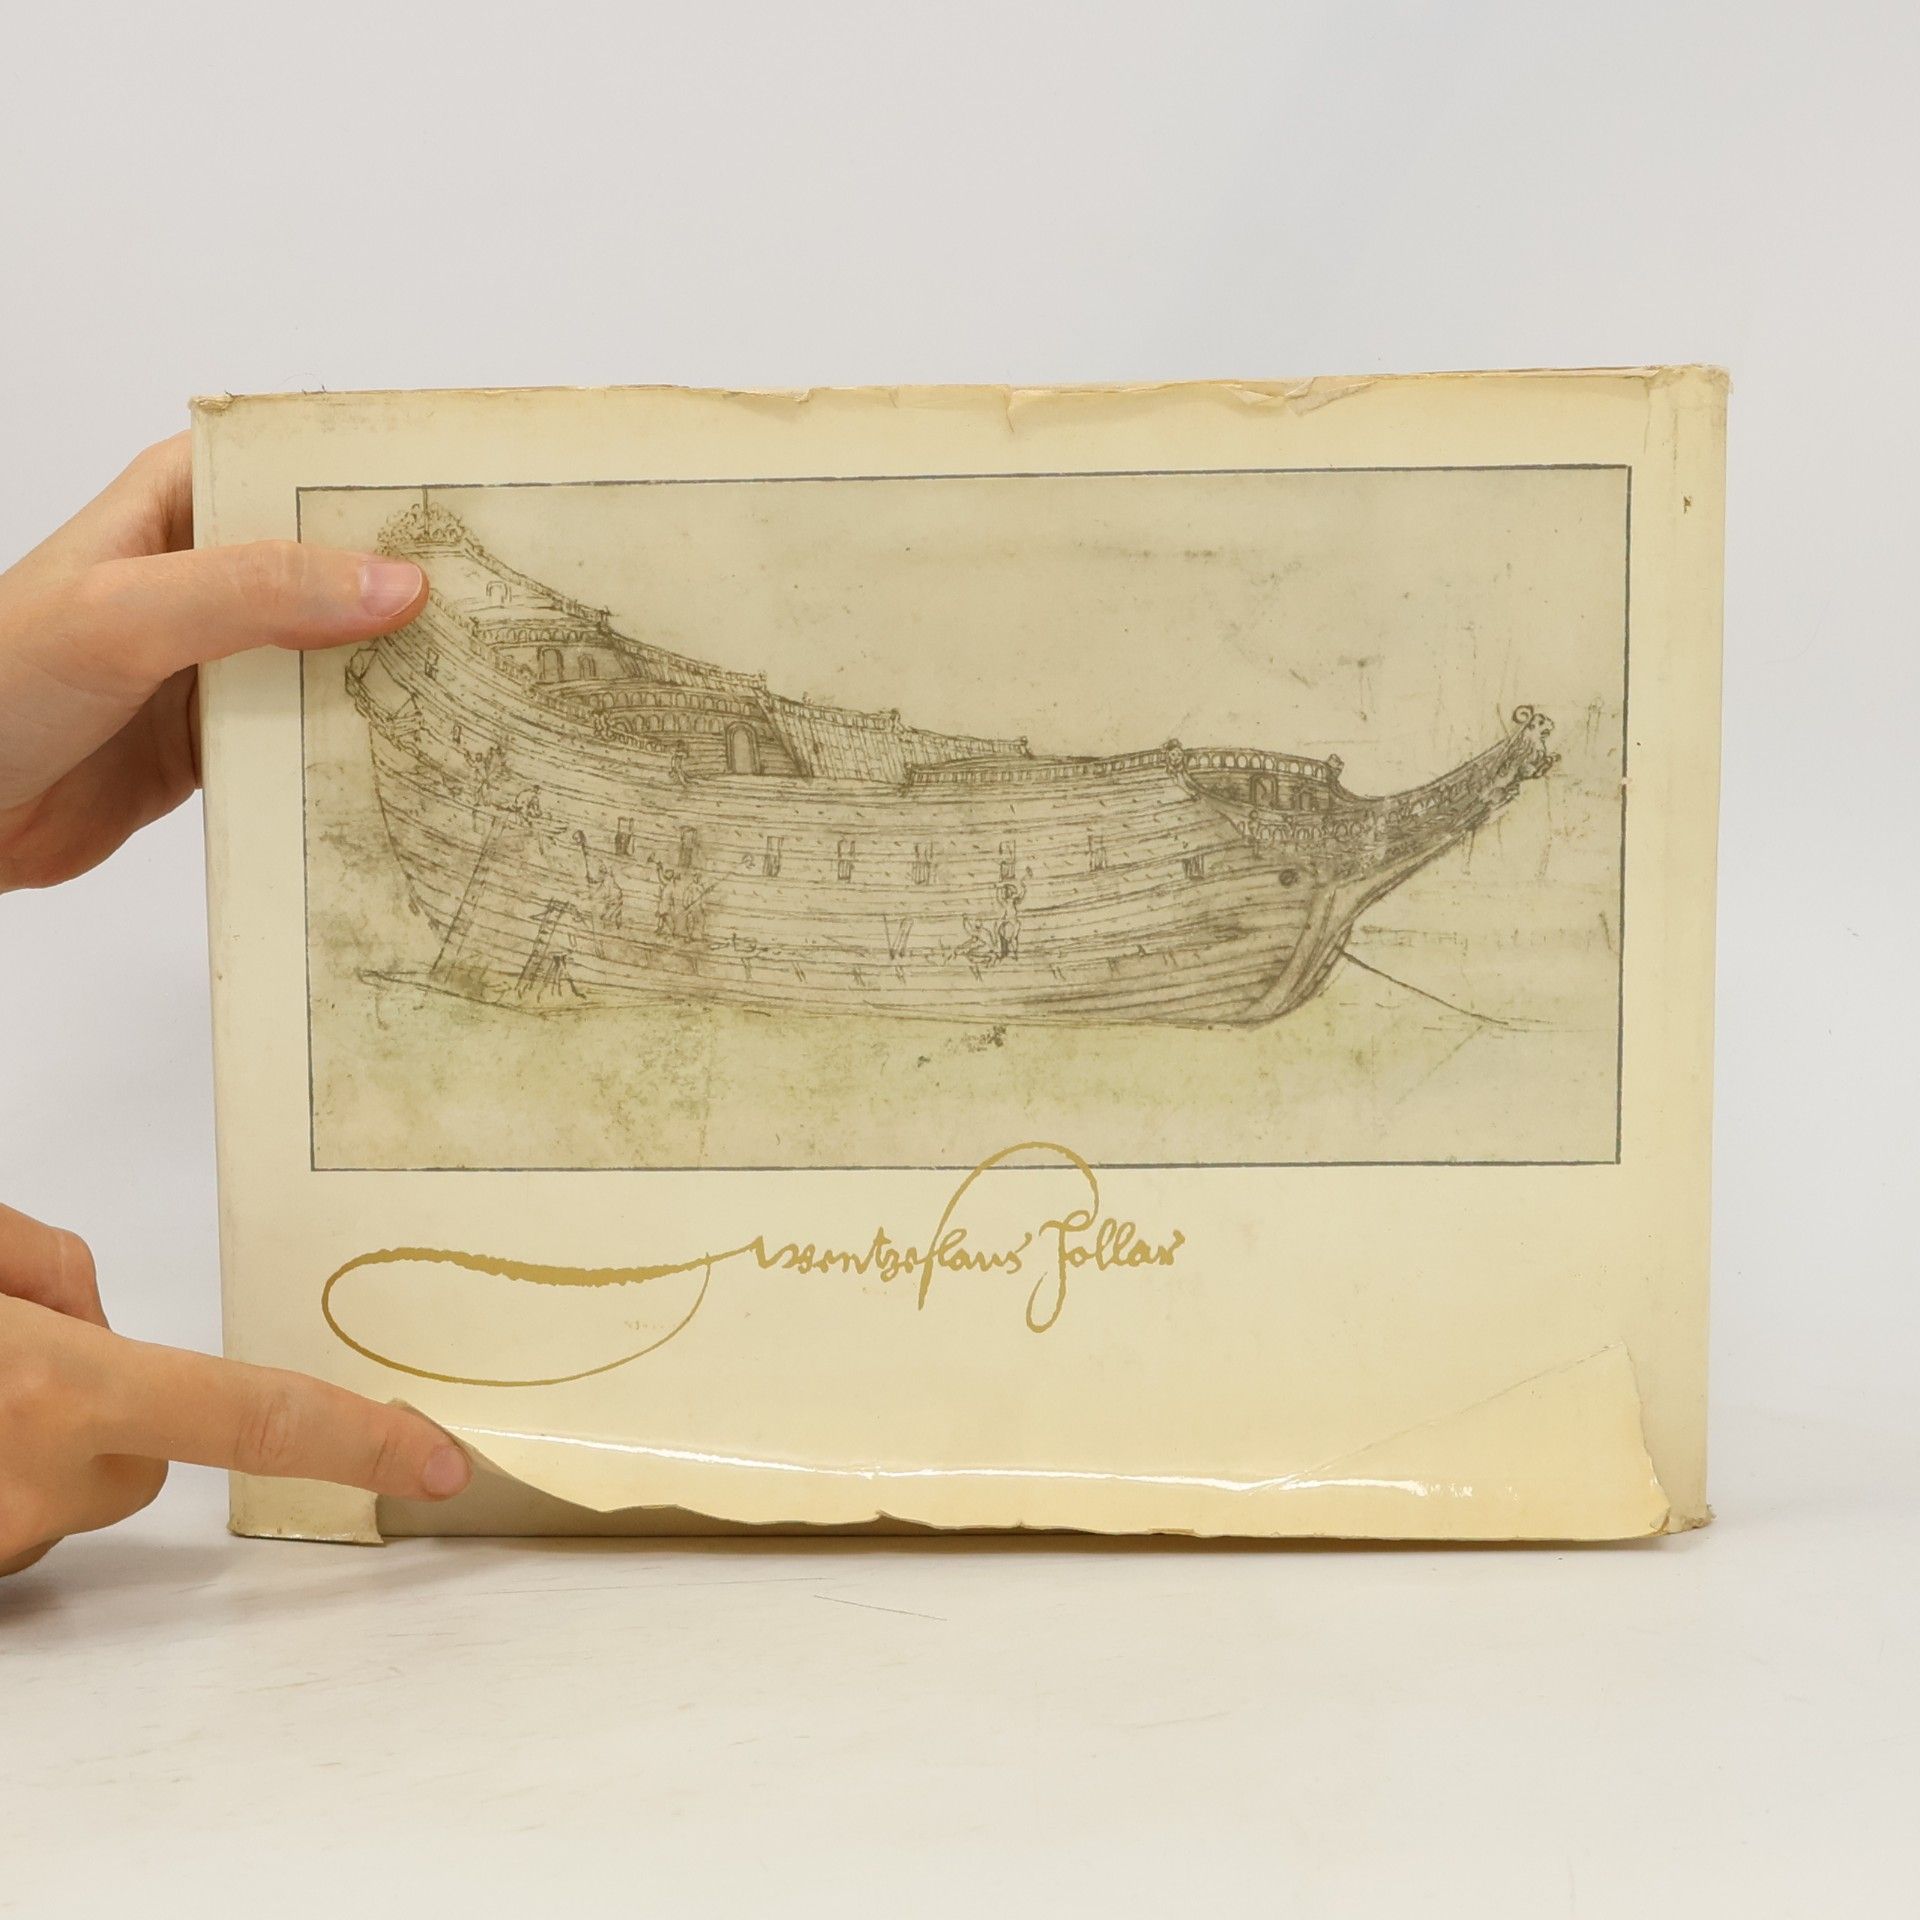 Wentzeslaus Hollar